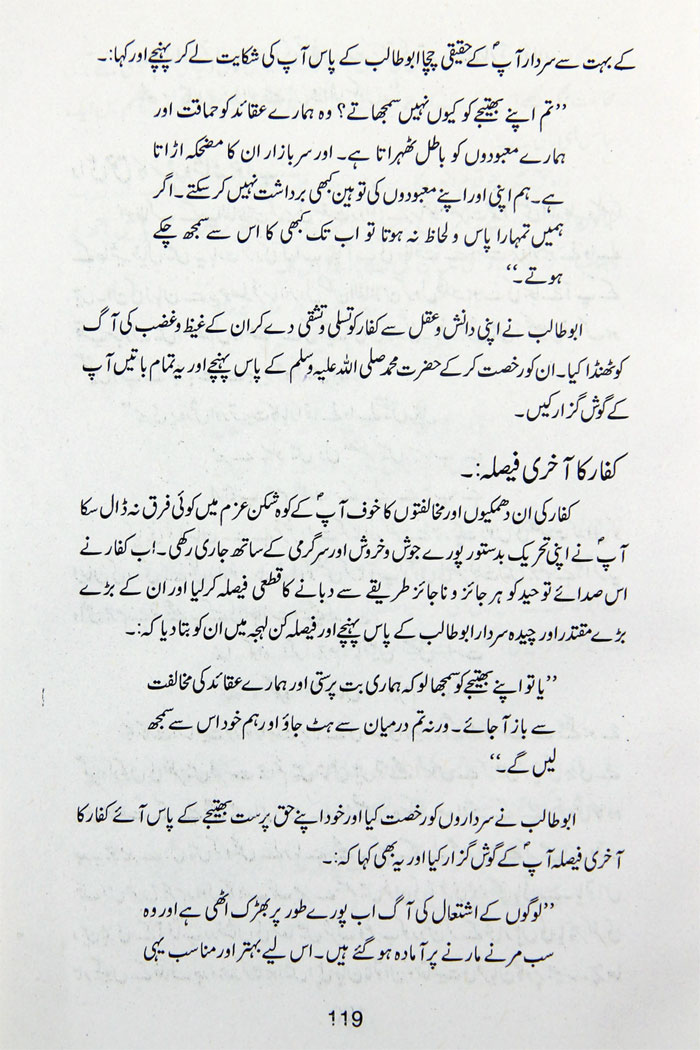 کے بہت سے سردار آپؐ کے حقیقی چچا ابو طالب کے پاس آپ کی شکایت لے کر پہنچے اور کہا:۔
’’تم اپنے بھتیجے کو کیوں نہیں سمجھاتے؟ وہ ہمارے عقائد کو حماقت اور
ہمارے معبودوں کو باطل ٹھہراتا ہے۔ اور سر بازار ان کا مضحکہ اڑاتا
ہے۔ ہم اپنی اور اپنے معبودوں کی توہین کبھی برداشت نہیں کر سکتے۔ اگر
ہمیں تمہارا پاس و لحاظ نہ ہوتا تو اب تک کبھی کا اس سے سمجھ چکے
ہوتے۔‘‘
ابو طالب نے اپنی دانش و عقل سے کفار کو تسلی و تشفی دے کر ان کے غیظ و غضب کی آگ
کو ٹھنڈا کیا۔ ان کو رخصت کر کے حضرت محمد صلی اللہ علیہ وسلم کے پاس پہنچے اور یہ تمام باتیں آپ
کے گوش گزار کیں۔
کفار کا آخری فیصلہ:۔
کفار کی ان دھمکیوں اور مخالفتوں کا خوف آپؐ کے کوہ شکن عزم میں کوئی فرق نہ ڈال سکا
آپؐ نے اپنی تحریک بدستور پورے جوش و خروش اور سرگرمی کے ساتھ جاری رکھی۔ اب کفار نے
اس صدائے توحید کو ہر جائز و ناجائز طریقے سے دبانے کا قطعی فیصلہ کر لیا اور ان کے بڑے
بڑے مقتدر اور چیدہ سردار ابو طالب کے پاس پہنچے اور فیصلہ کن لہجہ میں ان کو بتا دیا کہ:۔
’’یا تو اپنے بھتیجے کو سمجھا لو کہ ہماری بت پرستی اور ہمارے عقائد کی مخالفت
سے باز آ جائے۔ ورنہ تم درمیان سے ہٹ جاؤ اور ہم خود اس سے سمجھ
لیں گے۔‘‘
ابو طالب نے سرداروں کو رخصت کیا اور خود اپنے حق پرست بھتیجے کے پاس آئے کفار کا
آخری فیصلہ آپؐ کے گوش گزار کیا اور یہ بھی کہا کہ:۔
’’لوگوں کے اشتعال کی آگ اب پورے طور پر بھڑک اٹھی ہے اور وہ
سب مرنے مارنے پر آمادہ ہو گئے ہیں۔ اس لیے بہتر اور مناسب یہی
119